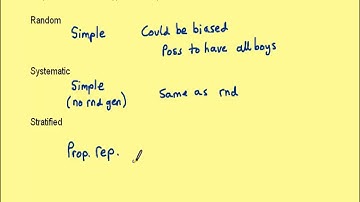 Random
Simple Could be biased
Poss to have all boys
Systematic
Simple Same as rnd
(no rnd gen)
Stratified
Prop. rep.